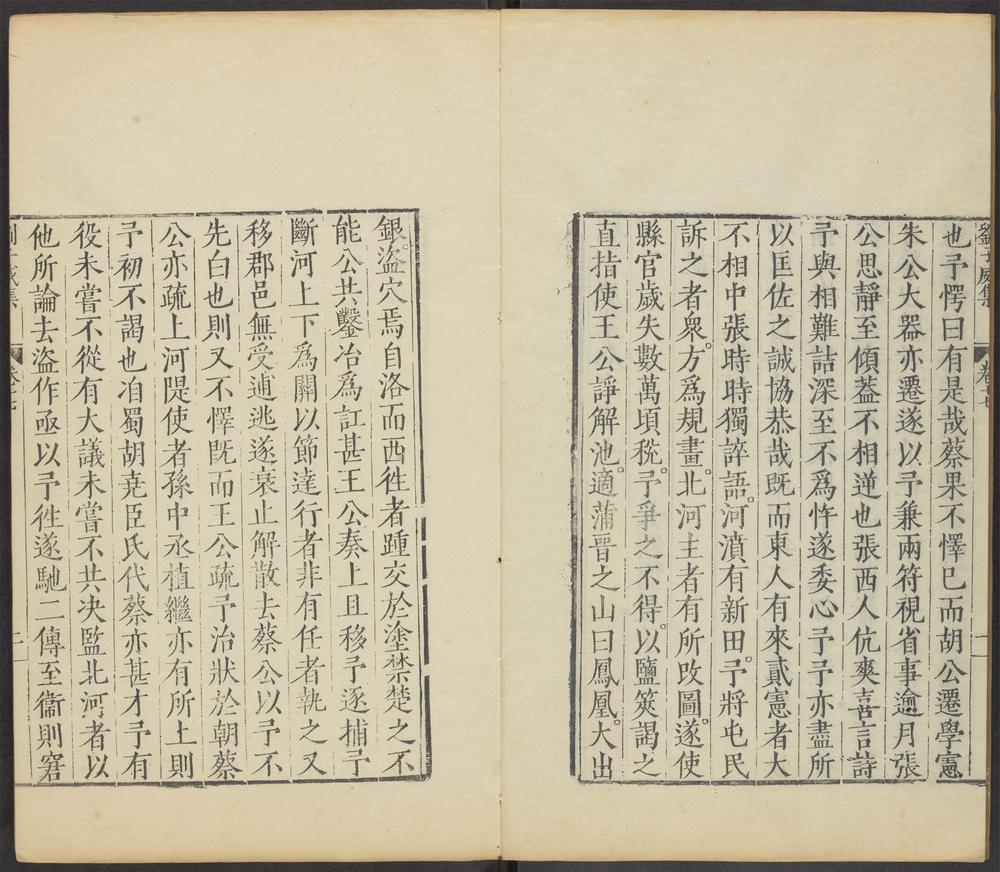 劉子威集
卷十七
十一
也予愕曰有是哉蔡果不懌已而胡公遷學憲
朱公大器亦遷遂以予兼兩符視省事逾月張
公思靜至傾葢不相逆也張西人伉爽喜言詩
予與相難詰深至不爲忤遂委心予予亦盡所
以匡佐之誠協恭哉既而東人有來貳憲者大
不相中張時時獨誶語河濆有新田予將屯民
訴之者衆方爲規畫北河主者有所改圖遂使
縣官歲失數萬頃稅予爭之不得以鹽筴謁之
直指使王公諍解池適蒲晉之山曰鳳凰大出
銀盜穴焉自洛而西徃者踵交於塗禁楚之不
能公共鑿冶爲訌甚王公奏上且移予逐捕予
斷河上下爲關以節達行者非有任者執之又
移郡邑無受逋逃遂衰止解散去蔡公以予不
先白也則又不懌既而王公疏予治狀於朝蔡
公亦疏上河隄使者孫中丞植繼亦有所上則
予初不謁也洎蜀胡堯臣氏代蔡亦甚才予有
役未嘗不從有大議未嘗不共决監北河者以
他所論去盜作亟以予徃遂馳二傳至衞則窘
卷十七